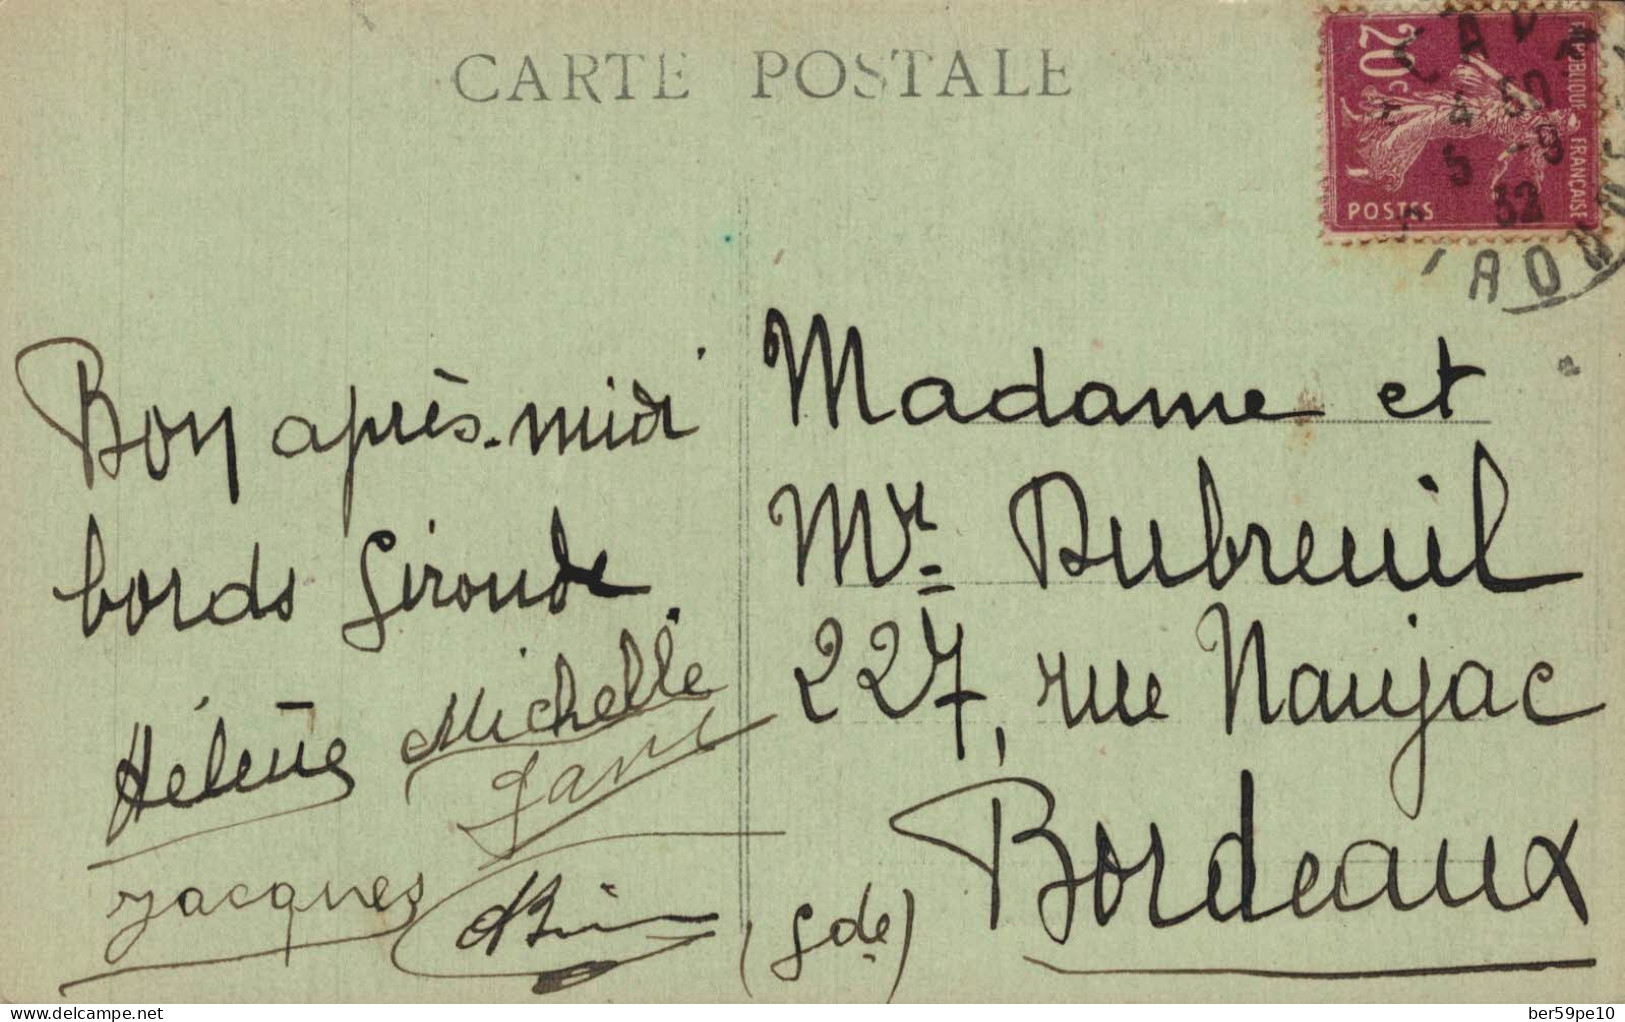 CARTE POSTALE
20c
RÉPUBLIQUE FRANÇAISE
POSTES
4 50
5 -9
32
Bon après-midi
bords Gironde.
Hélène Michelle
Jacques
Madame et
Mr. Dubreuil
227, rue Naujac
Bordeaux
(Gde)
delcampe.net
ber59pe10